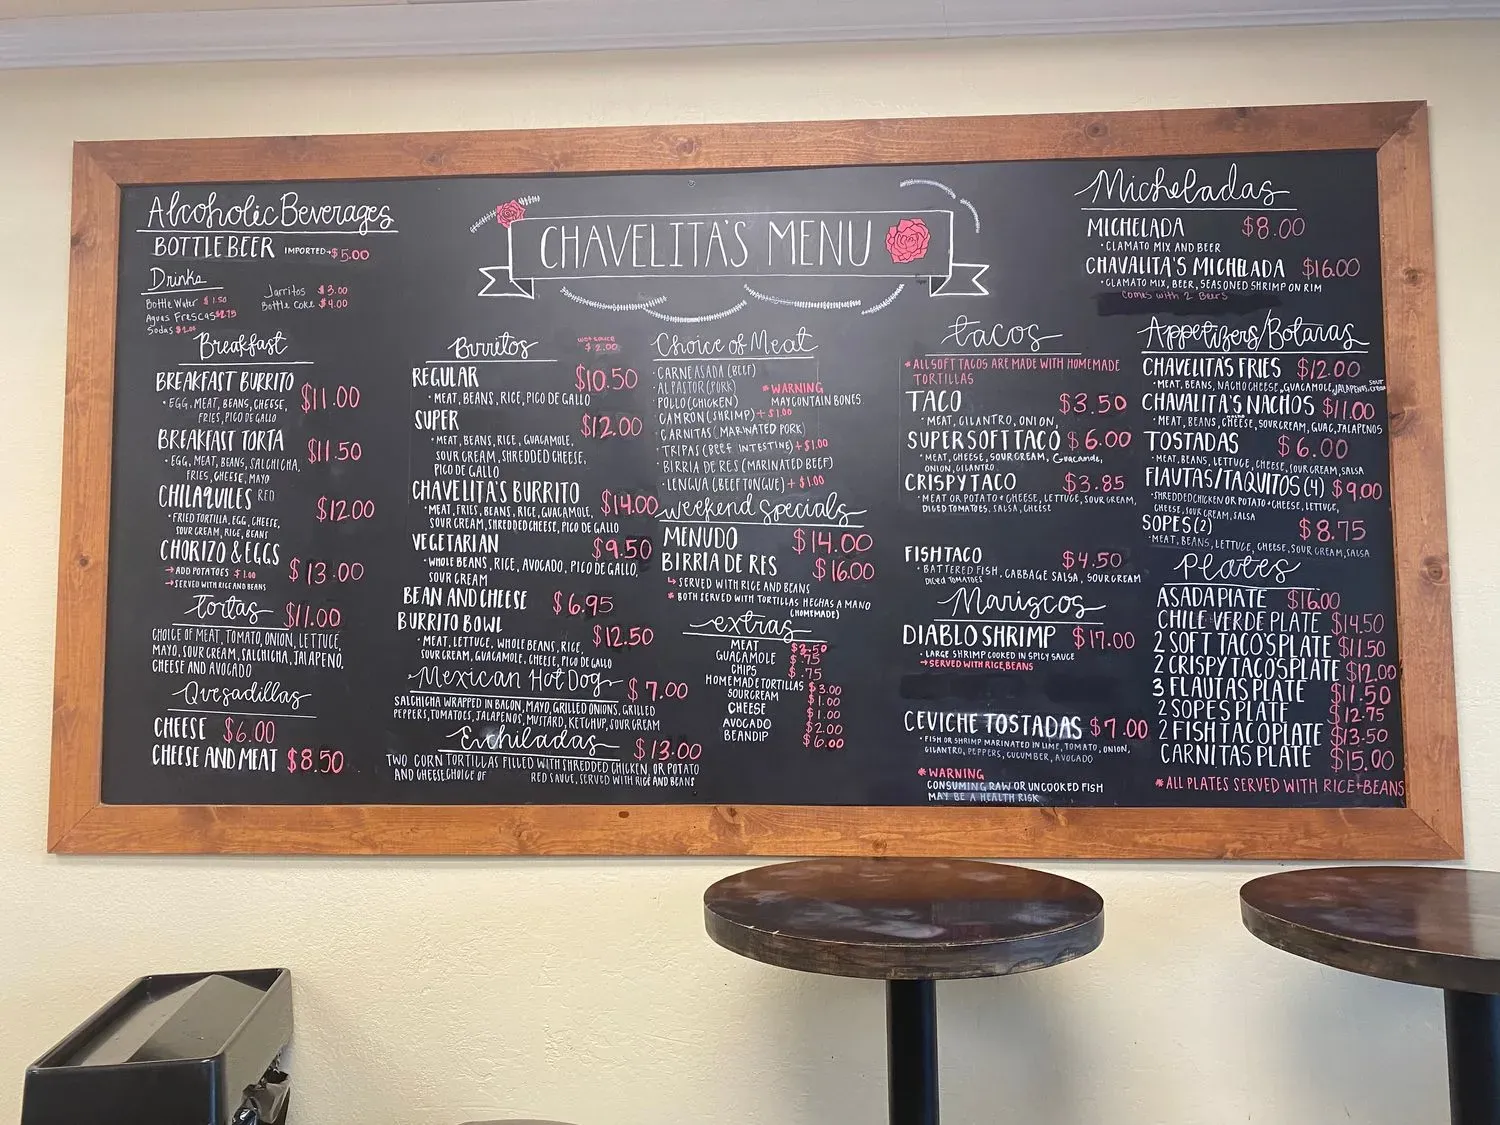 Alcoholic Beverages
BOTTLE BEER IMPORTED→$5.00
Drinks
Bottle Water $1.50
Aguas Frescas $2.75
Sodas $2.00
Jarritos $3.00
Bottle Coke $4.00
Breakfast
BREAKFAST BURRITO $11.00
•EGG, MEAT, BEANS, CHEESE,
FRIES, PICO DE GALLO
BREAKFAST TORTA $11.50
•EGG, MEAT, BEANS, SALCHICHA,
FRIES, CHEESE, MAYO
CHILAQUILES RED $12.00
•FRIED TORTILLA, EGG, CHEESE,
SOUR CREAM, RICE, BEANS
CHORIZO & EGGS $13.00
→ADD POTATOES $1.00
→SERVED WITH RICE AND BEANS
tortas $11.00
CHOICE OF MEAT, TOMATO, ONION, LETTUCE,
MAYO, SOUR CREAM, SALCHICHA, JALAPENO,
CHEESE AND AVOCADO
Quesadillas
CHEESE $6.00
CHEESE AND MEAT $8.50
CHAVELITA'S MENU
Burritos
wet sauce
$2.00
REGULAR $10.50
•MEAT, BEANS, RICE, PICO DE GALLO
SUPER $12.00
•MEAT, BEANS, RICE, GUACAMOLE,
SOUR CREAM, SHREDDED CHEESE,
PICO DE GALLO
CHAVELITA'S BURRITO $14.00
•MEAT, FRIES, BEANS, RICE, GUACAMOLE,
SOUR CREAM, SHREDDED CHEESE, PICO DE GALLO
VEGETARIAN $9.50
•WHOLE BEANS, RICE, AVOCADO, PICO DE GALLO,
SOUR CREAM
BEAN AND CHEESE $6.95
BURRITO BOWL $12.50
•MEAT, LETTUCE, WHOLE BEANS, RICE,
SOUR CREAM, GUACAMOLE, CHEESE, PICO DE GALLO
Mexican Hot Dog $7.00
SALCHICHA WRAPPED IN BACON, MAYO, GRILLED ONIONS, GRILLED
PEPPERS, TOMATOES, JALAPENOS, MUSTARD, KETCHUP, SOUR CREAM
Enchiladas $13.00
TWO CORN TORTILLAS FILLED WITH SHREDDED CHICKEN, OR POTATO
AND CHEESE CHOICE OF RED SAUCE, SERVED WITH RICE AND BEANS
Choice of Meat
•CARNE ASADA (BEEF)
•AL PASTOR (PORK)
•POLLO (CHICKEN)
•CAMRON (SHRIMP) +$1.00
•CARNITAS (MARINATED PORK)
•TRIPAS (BEEF INTESTINE) +$1.00
•BIRRIA DE RES (MARINATED BEEF)
•LENGUA (BEEF TONGUE) +$1.00
*WARNING
MAY CONTAIN BONES
weekend specials
MENUDO $14.00
BIRRIA DE RES $16.00
↳SERVED WITH RICE AND BEANS
*BOTH SERVED WITH TORTILLAS HECHAS A MANO
(HOMEMADE)
extras
MEAT $3.50
GUACAMOLE $.75
CHIPS $.75
HOMEMADE TORTILLAS $3.00
SOUR CREAM $1.00
CHEESE $1.00
AVOCADO $2.00
BEAN DIP $6.00
tacos
*ALL SOFT TACOS ARE MADE WITH HOMEMADE
TORTILLAS
TACO $3.50
•MEAT, CILANTRO, ONION,
SUPER SOFT TACO $6.00
•MEAT, CHEESE, SOUR CREAM, Guacamole,
ONION, CILANTRO
CRISPY TACO $3.85
•MEAT OR POTATO + CHEESE, LETTUCE, SOUR CREAM,
DICED TOMATOES, SALSA, CHEESE
FISH TACO $4.50
•BATTERED FISH, CABBAGE SALSA, SOUR CREAM
DICED TOMATOES
Mariscos
DIABLO SHRIMP $17.00
•LARGE SHRIMP COOKED IN SPICY SAUCE
→SERVED WITH RICE, BEANS
CEVICHE TOSTADAS $7.00
•FISH OR SHRIMP MARINATED IN LIME, TOMATO, ONION,
CILANTRO, PEPPERS, CUCUMBER, AVOCADO
*WARNING
CONSUMING RAW OR UNCOOKED FISH
MAY BE A HEALTH RISK
Micheladas
MICHELADA $8.00
•CLAMATO MIX AND BEER
CHAVALITA'S MICHELADA $16.00
•CLAMATO MIX, BEER, SEASONED SHRIMP ON RIM
Comes with 2 Beers
Appetizers/Botanas
CHAVELITA'S FRIES $12.00
•MEAT, BEANS, NACHO CHEESE, GUACAMOLE, JALAPENOS, SOUR CREAM
CHAVALITA'S NACHOS $11.00
•MEAT, BEANS, nacho CHEESE, SOUR CREAM, GUAC, JALAPENOS
TOSTADAS $6.00
•MEAT, BEANS, LETTUCE, CHEESE, SOUR CREAM, SALSA
FLAUTAS/TAQUITOS (4) $9.00
•SHREDDED CHICKEN OR POTATO + CHEESE, LETTUCE,
CHEESE, SOUR CREAM, SALSA
SOPES (2) $8.75
•MEAT, BEANS, LETTUCE, CHEESE, SOUR CREAM, SALSA
Plates
ASADA PLATE $16.00
CHILE VERDE PLATE $14.50
2 SOFT TACO'S PLATE $11.50
2 CRISPY TACO'S PLATE $12.00
3 FLAUTAS PLATE $11.50
2 SOPES PLATE $12.75
2 FISH TACO PLATE $13.50
CARNITAS PLATE $15.00
*ALL PLATES SERVED WITH RICE+BEANS